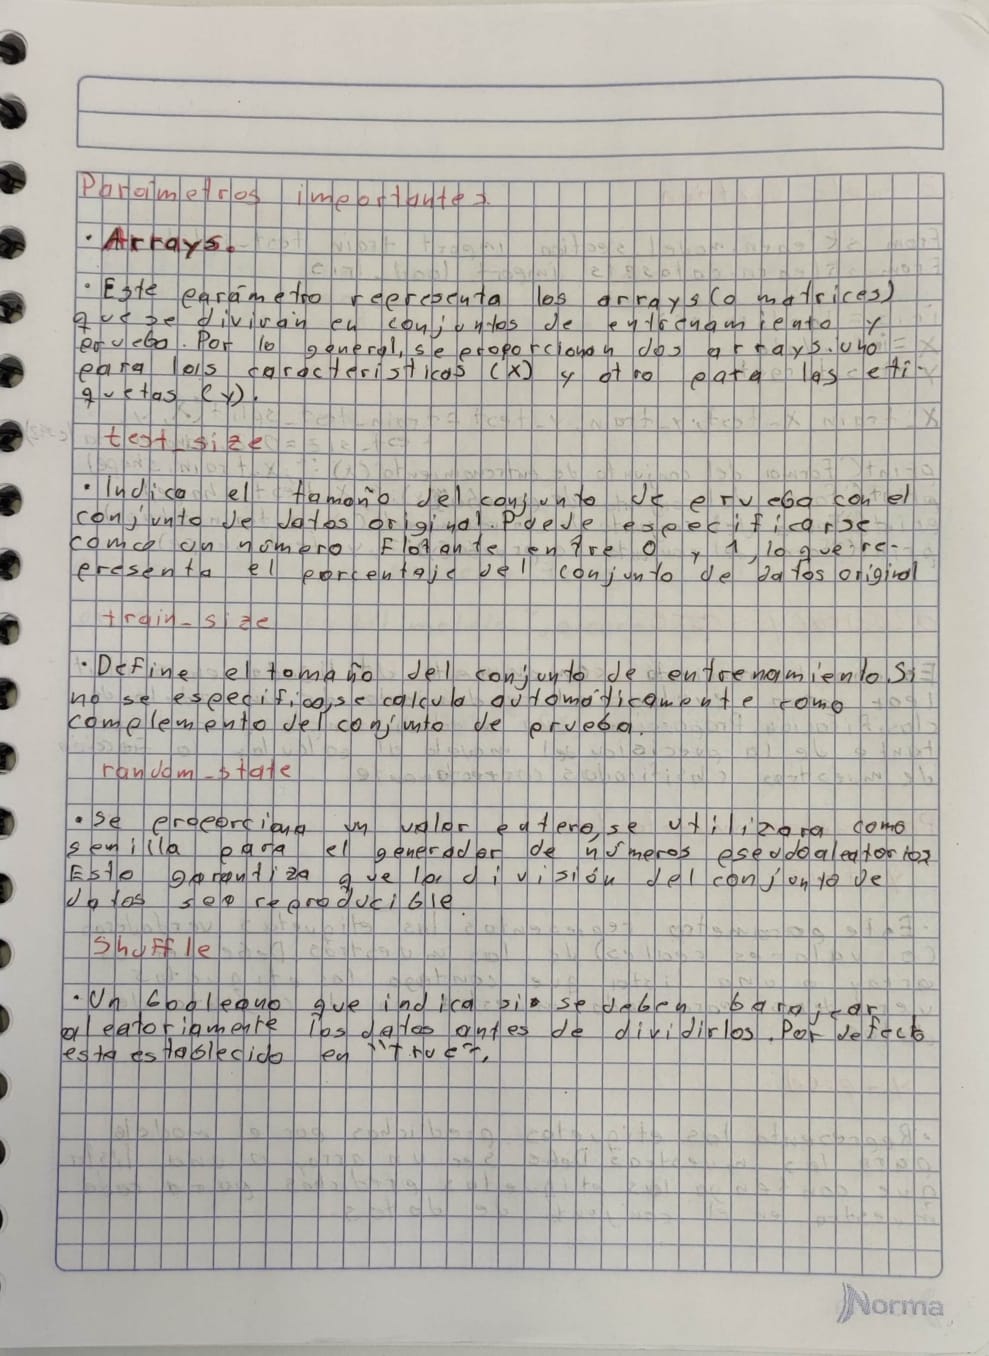 Parametros importantes
· Arrays.
· Este parámetro representa los arrays (o matrices)
que se dividirán en conjuntos de entrenamiento y
prueba. Por lo general, se proporcionan dos arrays. uno
para las características (X) y otro para las eti-
quetas (y).
test_size
· Indica el tamaño del conjunto de prueba con el
conjunto de datos original. Puede especificarse
como un número Flotante entre 0 y 1, lo que re-
presenta el porcentaje del conjunto de datos original
train_size
· Define el tamaño del conjunto de entrenamiento. Si
no se especifica, se calcula automáticamente como
complemento del conjunto de prueba.
random_state
· Se proporciona un valor entero, se utilizara como
semilla para el generador de números pseudoaleatorios
Esto garantiza que la división del conjunto de
datos sea reproducible.
Shuffle
· Un booleano que indica si se deben barajear
aleatoriamente los datos antes de dividirlos. Por defecto
esta establecido en "True".
Norma